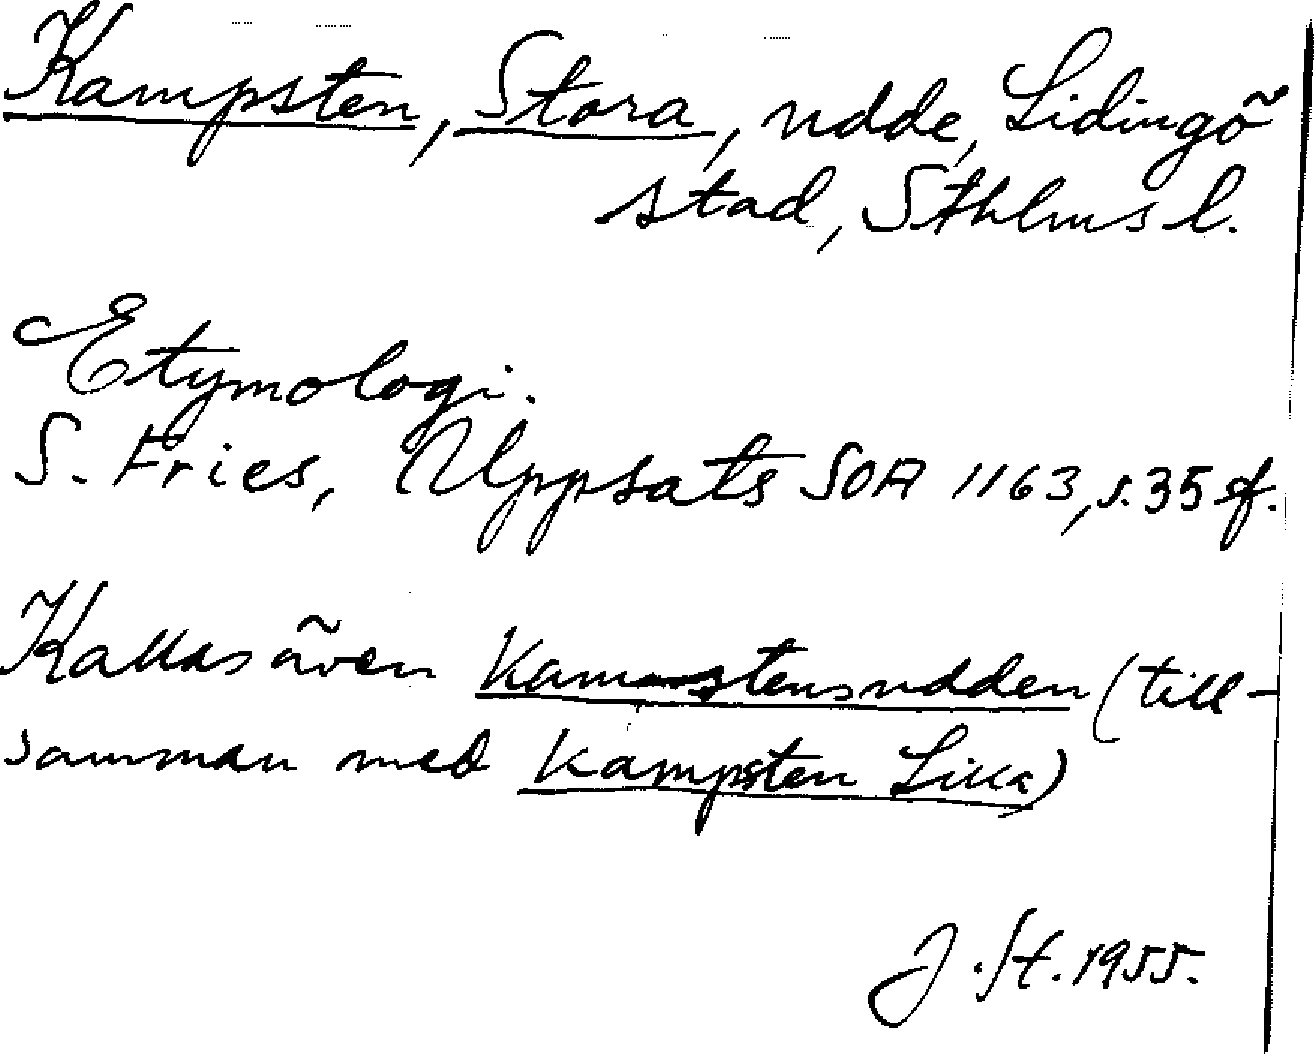 Kampsten, Stora, udde, Lidingö
stad, Sthlms l.
Etymologi.
S. Fries, Uppsats SOA 1163, s. 35 f.
Kallas även Kamstensudden (till-
samman med Kampsten Lilla)
J. St. 1955.